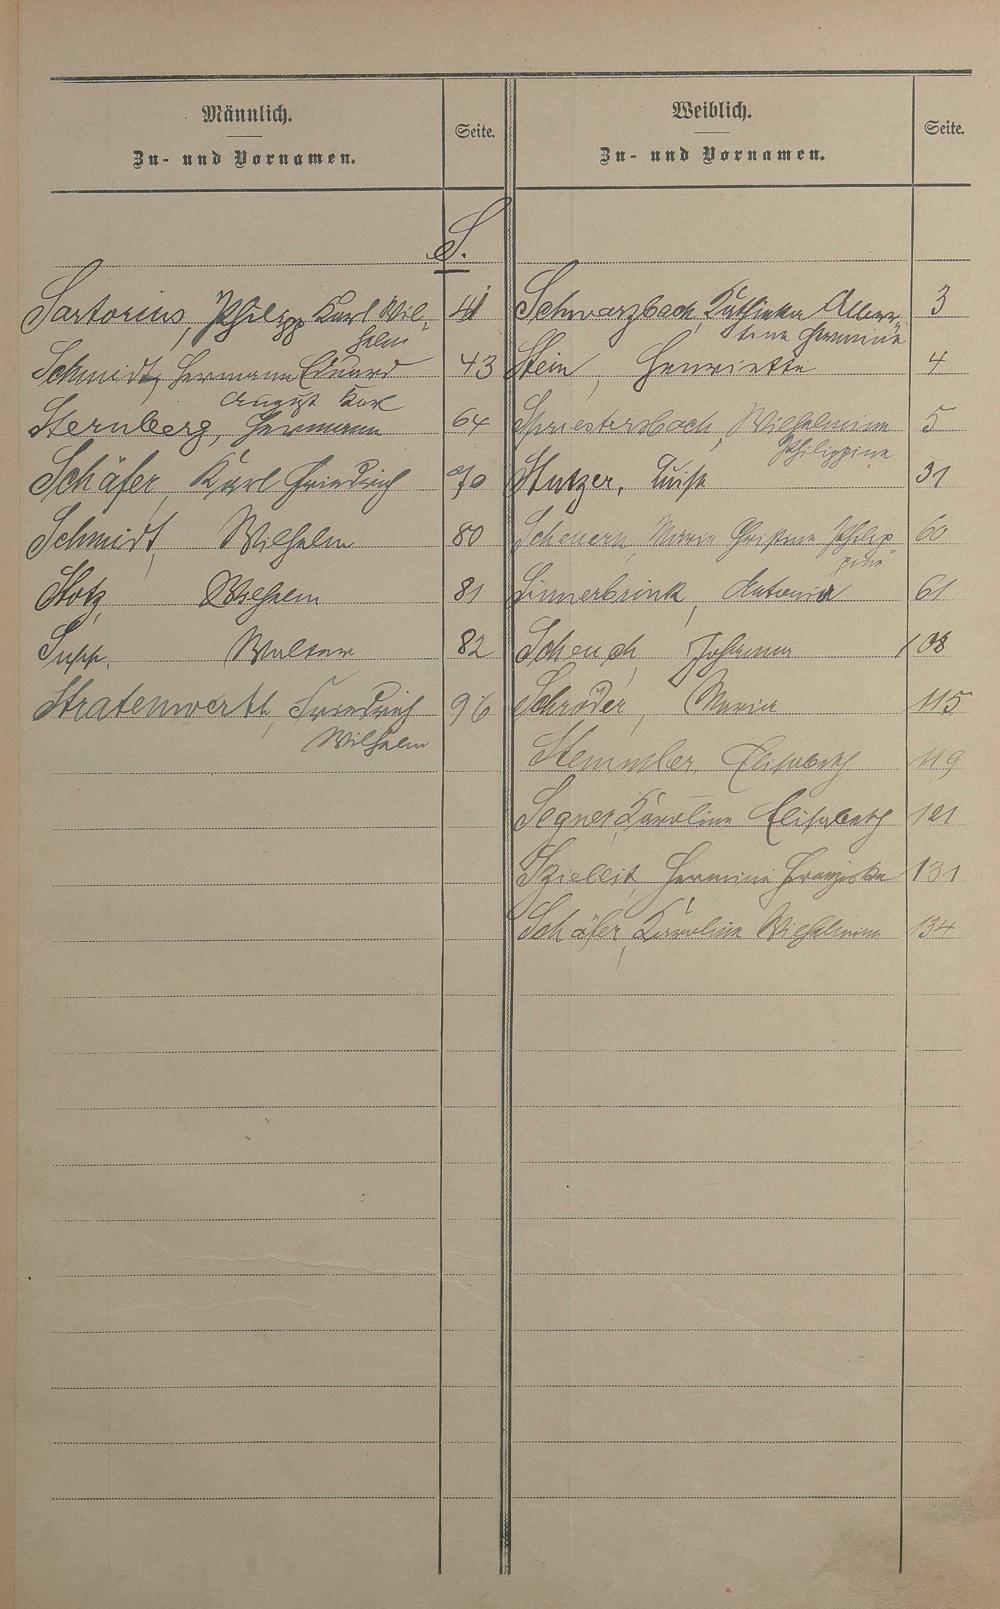 Männlich.
Zu- und Vornamen.
Seite.
Weiblich.
Zu- und Vornamen.
Seite.
S.
Sartorius, Philipp Karl Wil-
helm
41
Schmidt, Hermann Eduard
August Karl
43
Sternberg, Hermann
64
Schäfer, Karl Friedrich
70
Schmidt, Wilhelm
80
Stotz, Wilhelm
81
Supp, Walter
82
Stratenwerth, Friedrich
Wilhelm
96
Schwarzbach, Kathinka Alber-
tine Hermine
3
Stein, Henriette
4
Spriestersbach, Wilhelmine
Philippine
5
Stutzer, Luise
31
Scheuern, Marie Christine Philip
pine
60
Sinnerbrink, Antonie
61
Schench, Johanna
108
Schröder, Maria
115
Stemmler, Elisabeth
119
Segner, Karoline Elisabeth
121
Szielleit, Hermine Franziska
131
Schäfer, Karoline Wilhelmine
134